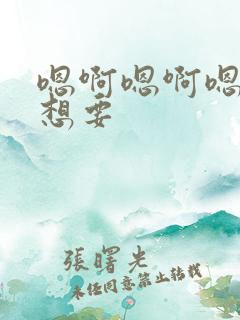 嗯啊嗯啊嗯
想要
張曙光
未经同意禁止转载